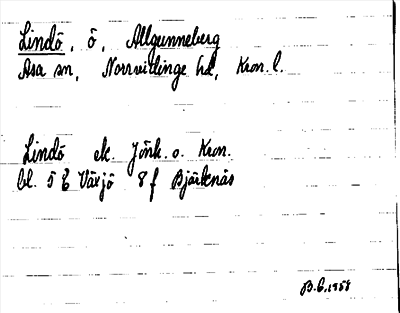 Lindö, ö, Allgunneberg
Asa sn, Norrvidinge hd, Kron. l.
Lindö ek. Jönk. o. Kron.
bl. 5 E Växjö 8 f Bjärkenäs
B.E. 1958